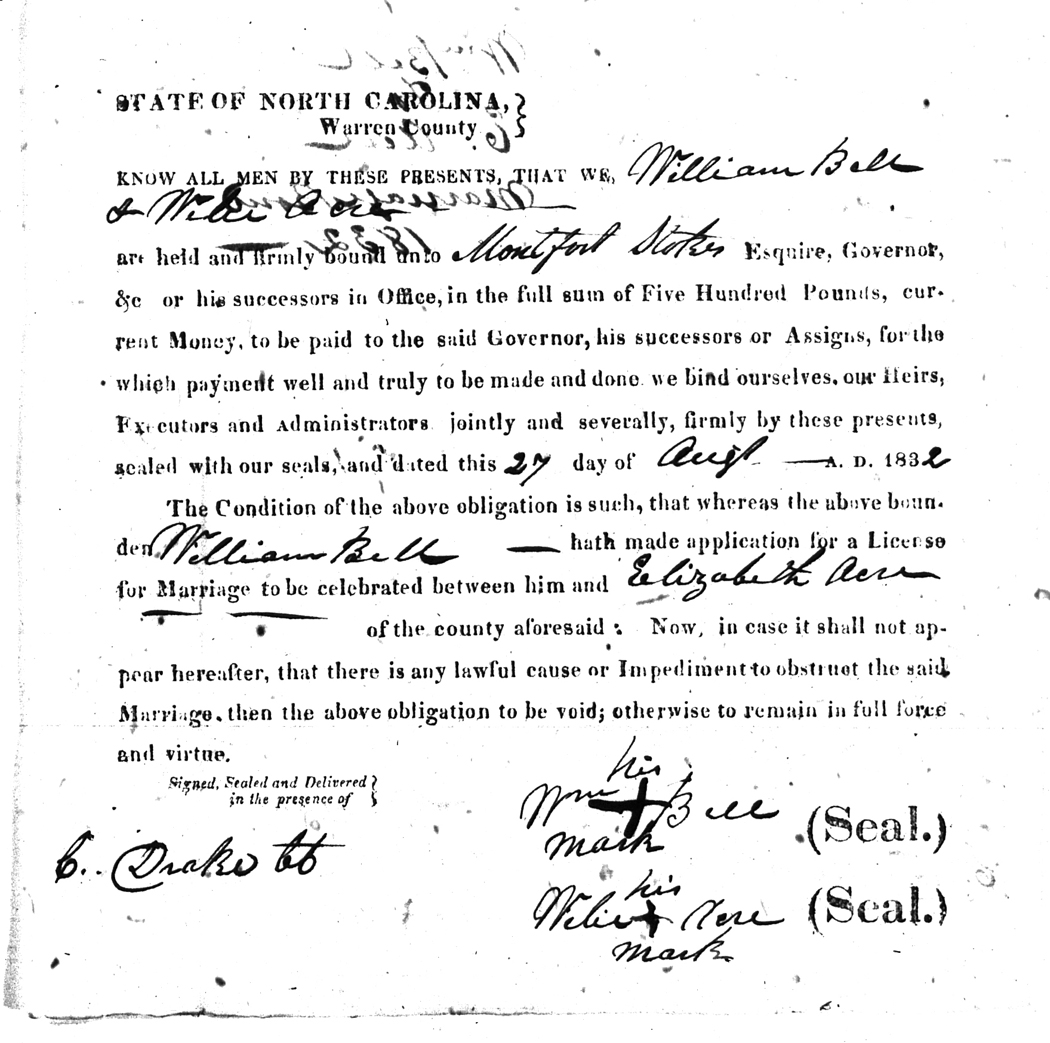 STATE OF NORTH CAROLINA,
Warren County
KNOW ALL MEN BY THESE PRESENTS, THAT WE, William Bell
& Acre
are held and firmly bound unto Montfort Stokes Esquire, Governor,
&c or his successors in Office, in the full sum of Five Hundred Pounds, cur-
rent Money, to be paid to the said Governor, his successors or Assigns, for the
which payment well and truly to be made and done. we bind ourselves, our Heirs,
Executors and Administrators jointly and severally, firmly by these presents,
sealed with our seals, and dated this 27 day of Augt A. D. 1832
The Condition of the above obligation is such, that whereas the above boun-
den William Bell hath made application for a License
for Marriage to be celebrated between him and Elizabeth Acre
of the county aforesaid: Now, in case it shall not ap-
pear hereafter, that there is any lawful cause or Impediment to obstruct the said
Marriage, then the above obligation to be void; otherwise to remain in full force
and virtue.
Signed, Sealed and Delivered
in the presence of
his
Wm + Bell (Seal.)
mark
C. Drake
his
+ Acre (Seal.)
mark